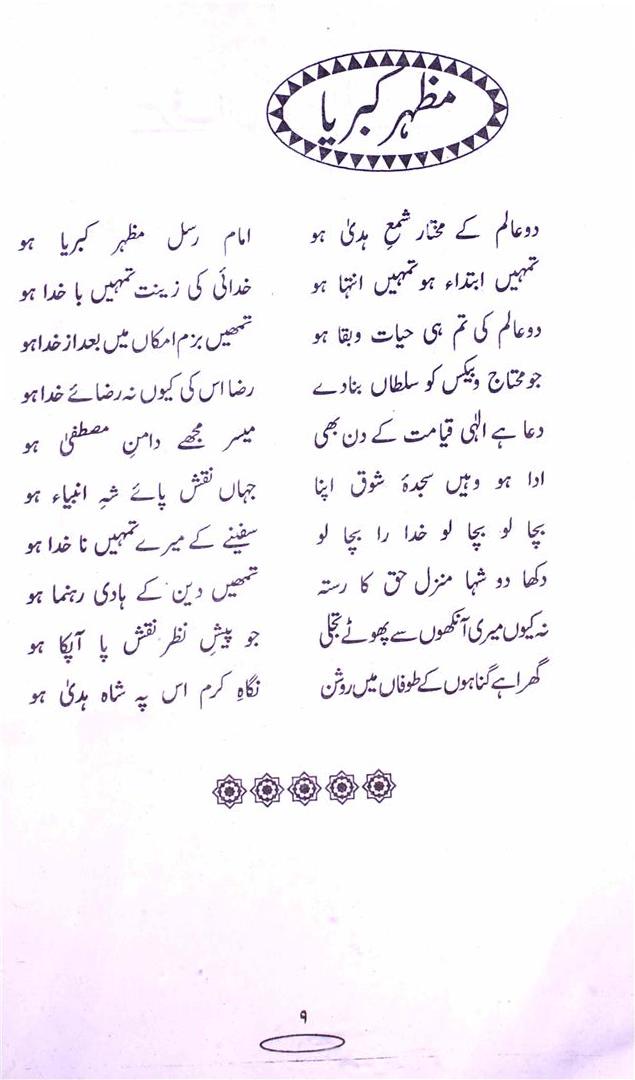 مظہر کبریا
دو عالم کے مختار شمعِ ہدیٰ ہو امام رسل مظہر کبریا ہو
تمہیں ابتداء ہو تمہیں انتہا ہو خدائی کی زینت تمہیں با خدا ہو
دو عالم کی تم ہی حیات و بقا ہو تمھیں بزم امکاں میں بعد از خدا ہو
جو محتاج و بیکس کو سلطاں بنا دے رضا اس کی کیوں نہ رضائے خدا ہو
دعا ہے الٰہی قیامت کے دن بھی میسر مجھے دامنِ مصطفیٰ ہو
ادا ہو وہیں سجدۂ شوق اپنا جہاں نقش پائے شہِ انبیاء ہو
بچا لو بچا لو خدا را بچا لو سفینے کے میرے تمہیں نا خدا ہو
دکھا دو شہا منزل حق کا رستہ تمھیں دین کے ہادی رہنما ہو
نہ کیوں میری آنکھوں سے پھوٹے تجلی جو پیشِ نظر نقش پا آپکا ہو
گھرا ہے گناہوں کے طوفاں میں روشن نگاہِ کرم اس پہ شاہ ہدیٰ ہو
۹